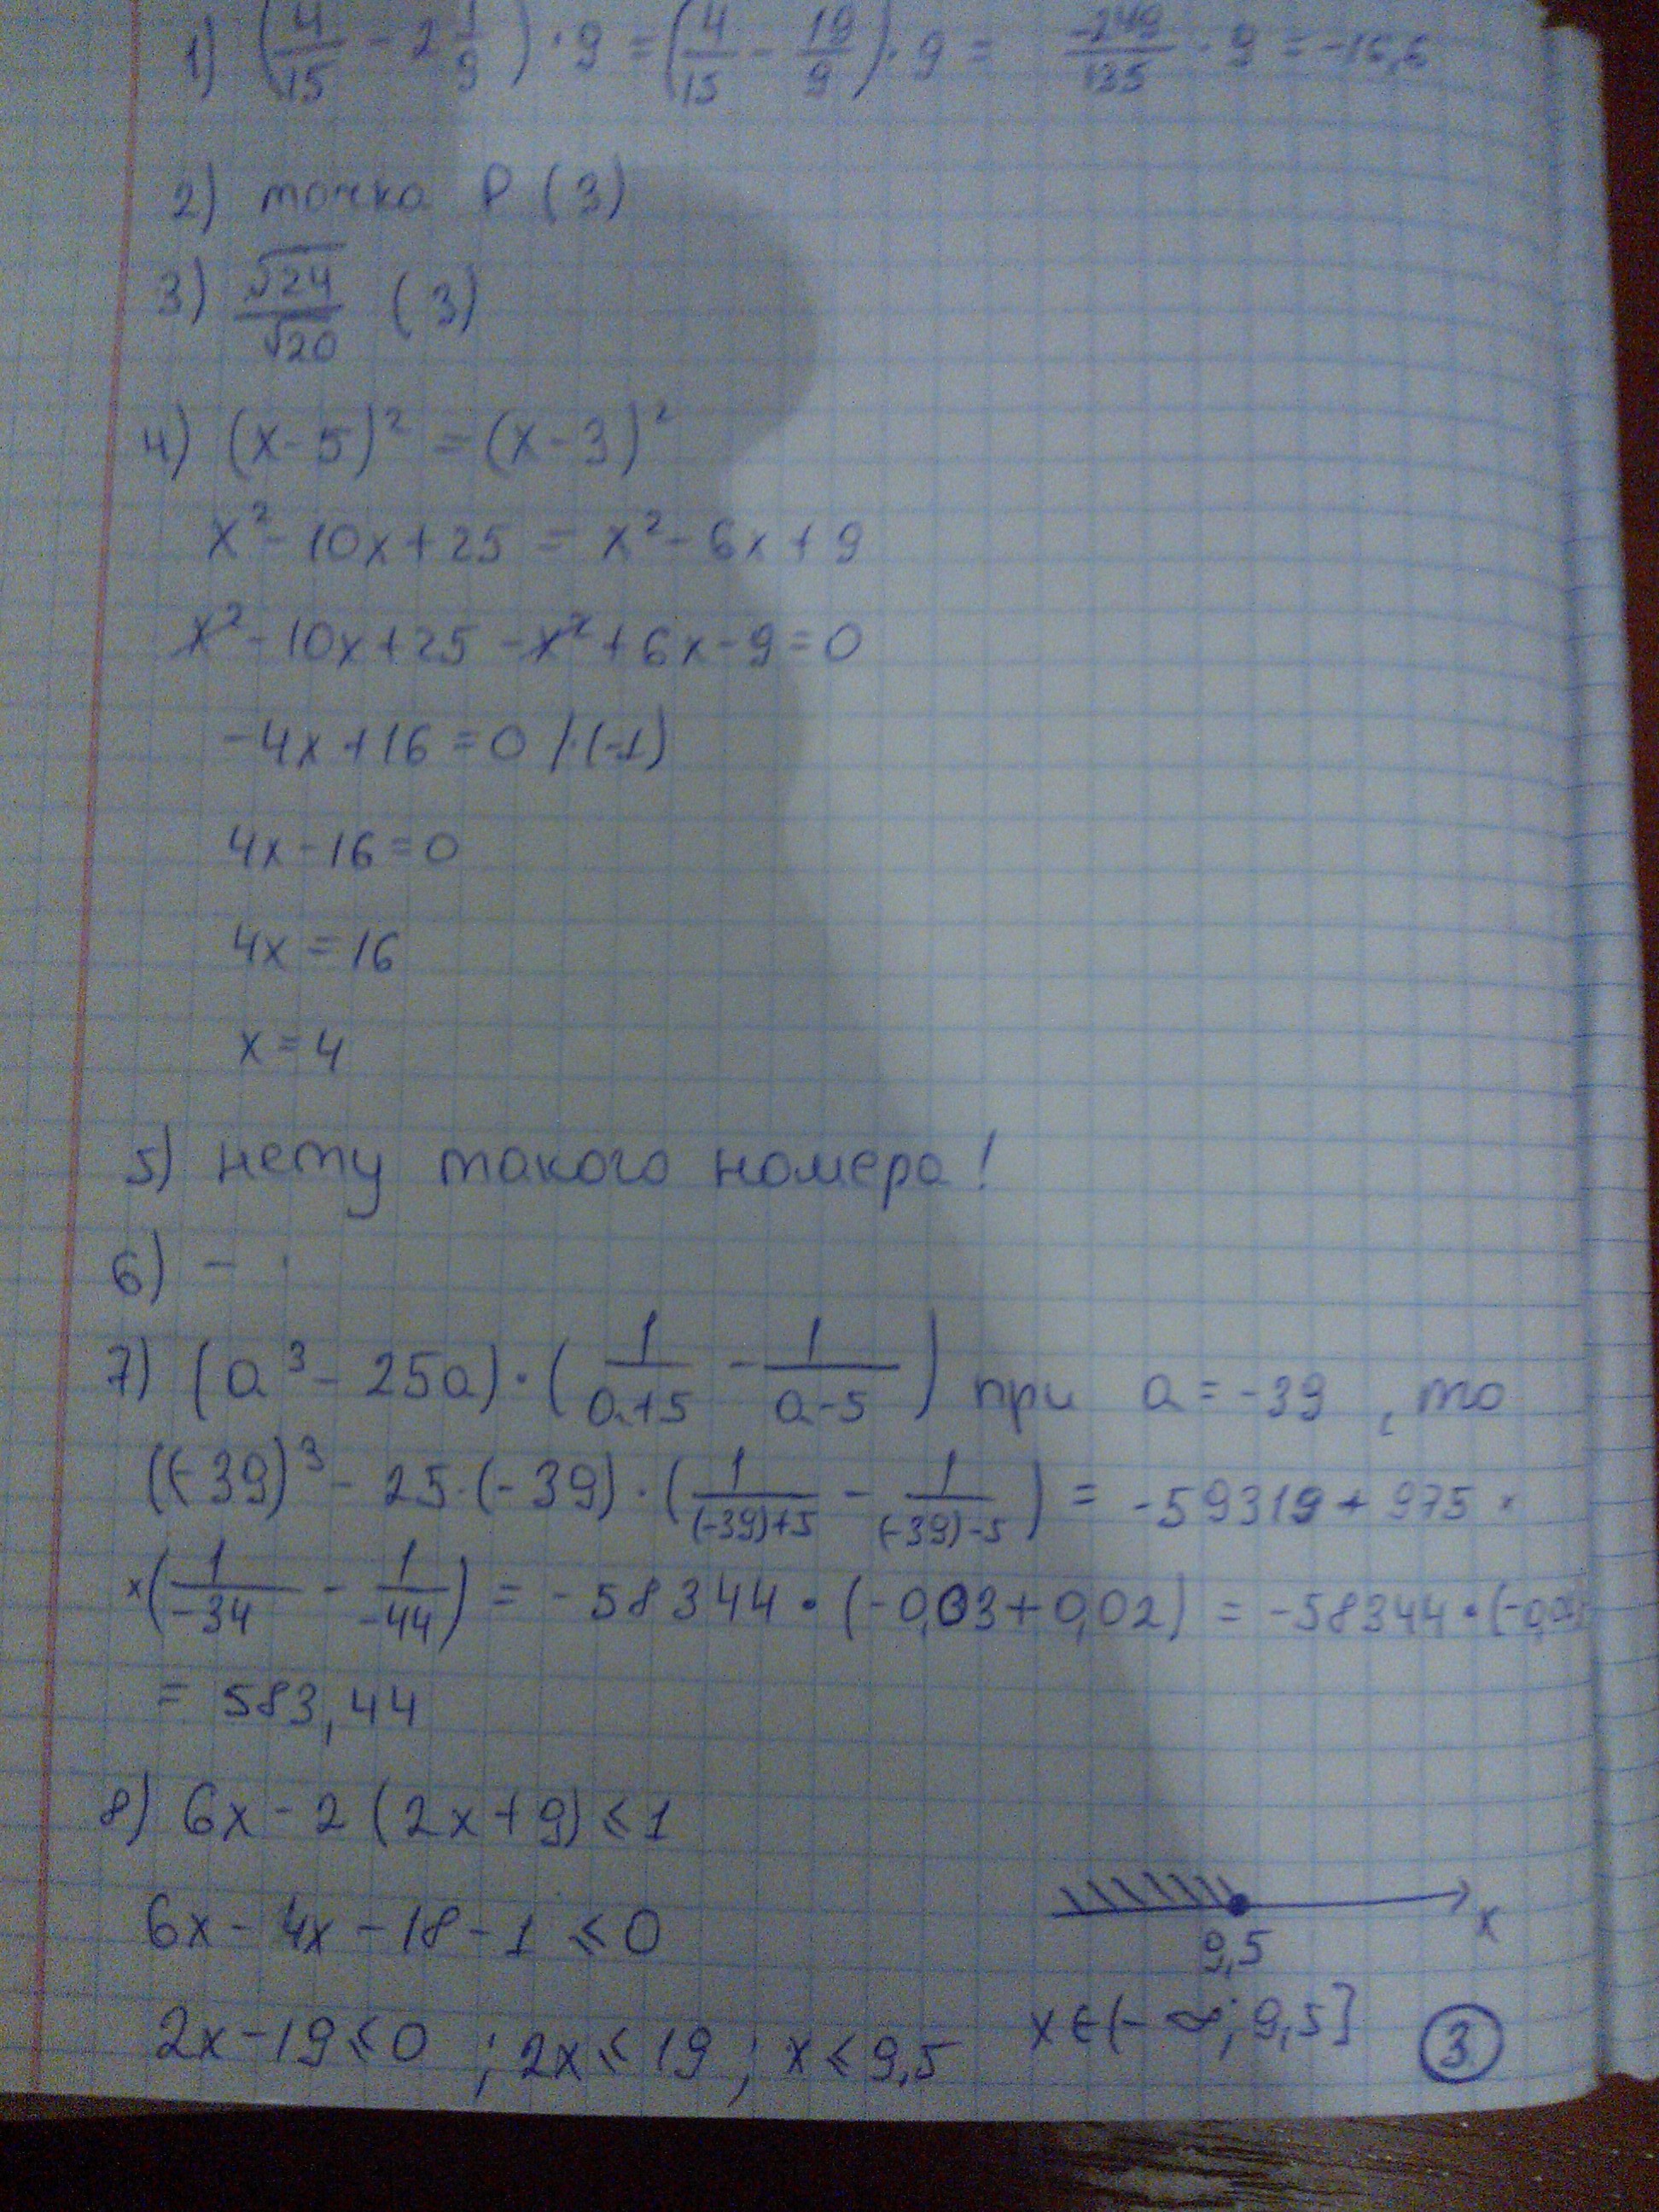 1) (4/15 - 2 1/9) · 9 = (4/15 - 19/9) · 9 = -249/135 · 9 = -16,6
2) точка P (3)
3) √24/√20 (3)
4) (x-5)² = (x-3)²
x² - 10x + 25 = x² - 6x + 9
x² - 10x + 25 - x² + 6x - 9 = 0
-4x + 16 = 0 /·(-1)
4x - 16 = 0
4x = 16
x = 4
5) нету такого номера!
6) -
7) (a³ - 25a) · (1/a+5 - 1/a-5) при a = -39, то
((-39)³ - 25·(-39) · (1/(-39)+5 - 1/(-39)-5) = -59319 + 975 ×
×(1/-34 - 1/-44) = -58344 · (-0,03 + 0,02) = -58344 · (-0,01
= 583,44
8) 6x - 2(2x+9) ≤ 1
6x - 4x - 18 - 1 ≤ 0
9,5 x
2x - 19 ≤ 0 ; 2x ≤ 19 ; x ≤ 9,5 x ∈ (-∞; 9,5] 3